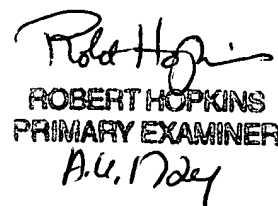 Robt Hopkins
ROBERT HOPKINS
PRIMARY EXAMINER
A.U. 1724